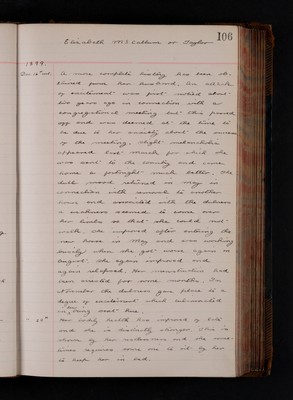 Elizabeth McCallum or Taylor 106
1899.
Dec 18th A more complete history has been ob-
tained from her husband. An attack
of excitement was first noticed about
two years ago in connection with a
congregational meeting but this passed
off and was deemed at the time to
be due to her anxiety about the success
of the meeting. Slight melancholia
appeared last March for which she
was sent to the country and came
home a fortnight much better. The
dull mood returned in May in
connection with removal to another
house and associated with the dulness
a weakness seemed to come over
her limbs so that she could not
walk. She improved after entering the
new house in May and was working
when she got worse again in
August. She again improved and
again relapsed. Her menstruation had
been for some months. In
November the dulness gave place to a
degree of excitement which culminated
in being sent here.
Her bodily health has improved of late
and she is distinctly stronger. This is
shown by her and she some-
times requires some one to sit by her
to keep her in bed.